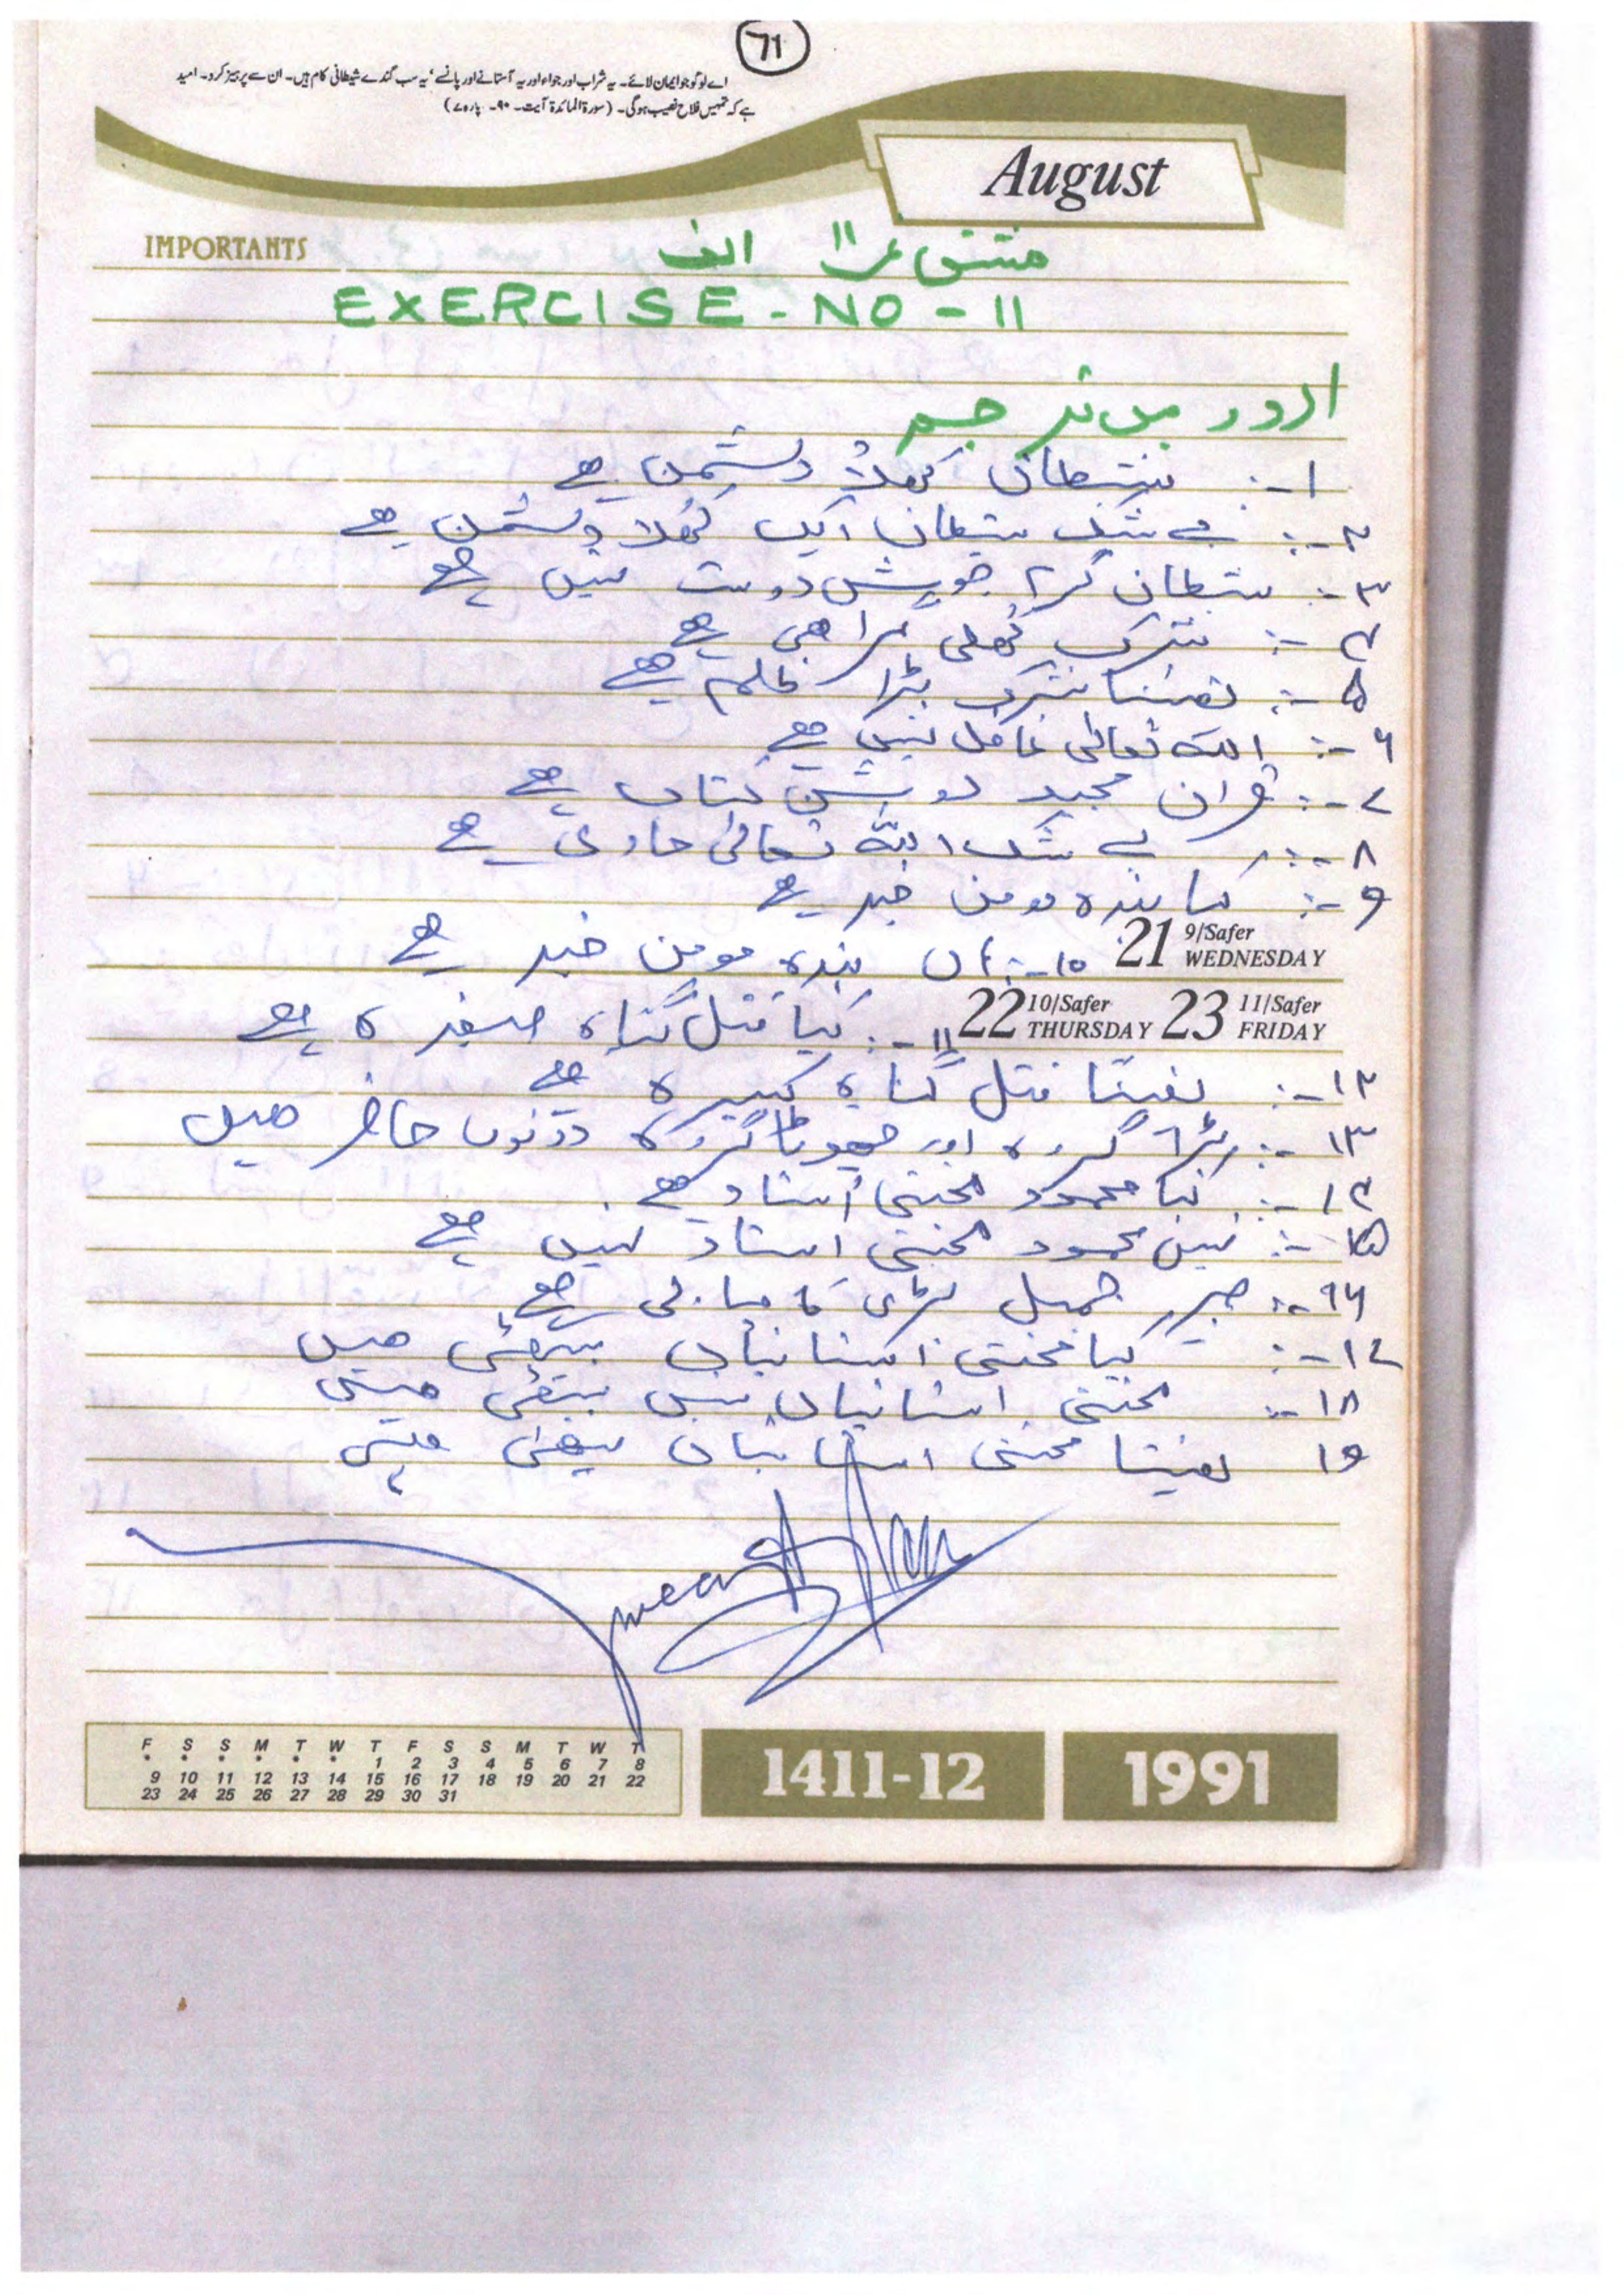 71
اے لوگو جو ایمان لائے۔ یہ شراب اور جواء اور یہ آستانے اور پانسے' یہ سب گندے شیطانی کام ہیں۔ ان سے پرہیز کرو۔ امید
ہے کہ تمہیں فلاح نصیب ہوگی۔ (سورۃ المائدۃ آیت۔ ۹۰۔ پارہ ۷)
August
IMPORTANTS
مشق نمبر ۱۱ الف
EXERCISE-NO-11
اردو میں ترجمہ
۱-: شیطان کھلا دشمن ہے
۲-: بے شک شیطان ایک کھلا دشمن ہے
۳-: شیطان دوست نہیں ہے
۴-: شرک کھلی گمراہی ہے
۵-: یقینا شرک بڑا ظلم ہے
۶-: اللہ تعالی غافل نہیں ہے
۷-: قران مجید روشن کتاب ہے
۸-: بے شک اللہ تعالی ہے
۹-: کیا بندہ مومن ہے
21 9/Safer WEDNESDAY
۱۰-: ہاں بندہ مومن ہے
22 10/Safer THURSDAY 23 11/Safer FRIDAY
۱۱-: کیا قتل گناہ صغیرہ ہے
۱۲-: یقینا قتل گناہ کبیرہ ہے
۱۳-: بڑا گروہ اور چھوٹا گروہ دونوں حاضر ھیں
۱۴-: کیا محمود محنتی استاد ہے
۱۵-: نہیں محمود محنتی استاد نہیں ہے
۱۶-: صبر جمیل بڑی کامیابی ہے
۱۷-: کیا محنتی استانیاں بیٹھی ھیں
۱۸-: محنتی استانیاں نہیں بیٹھی ھیں
۱۹ یقینا محنتی استانیاں بیٹھی ھیں
F S S M T W T F S S M T W T
* * * * * * 1 2 3 4 5 6 7 8
9 10 11 12 13 14 15 16 17 18 19 20 21 22
23 24 25 26 27 28 29 30 31
1411-12
1991